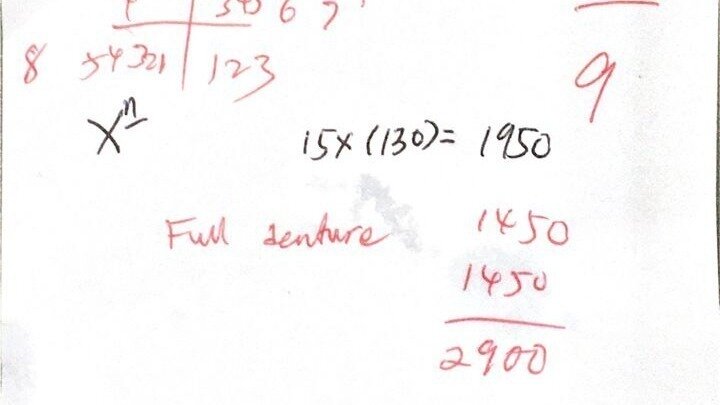 6 7
8 54321 | 123
9
Xn 15x(130)= 1950
Full denture 1450
1450
2900